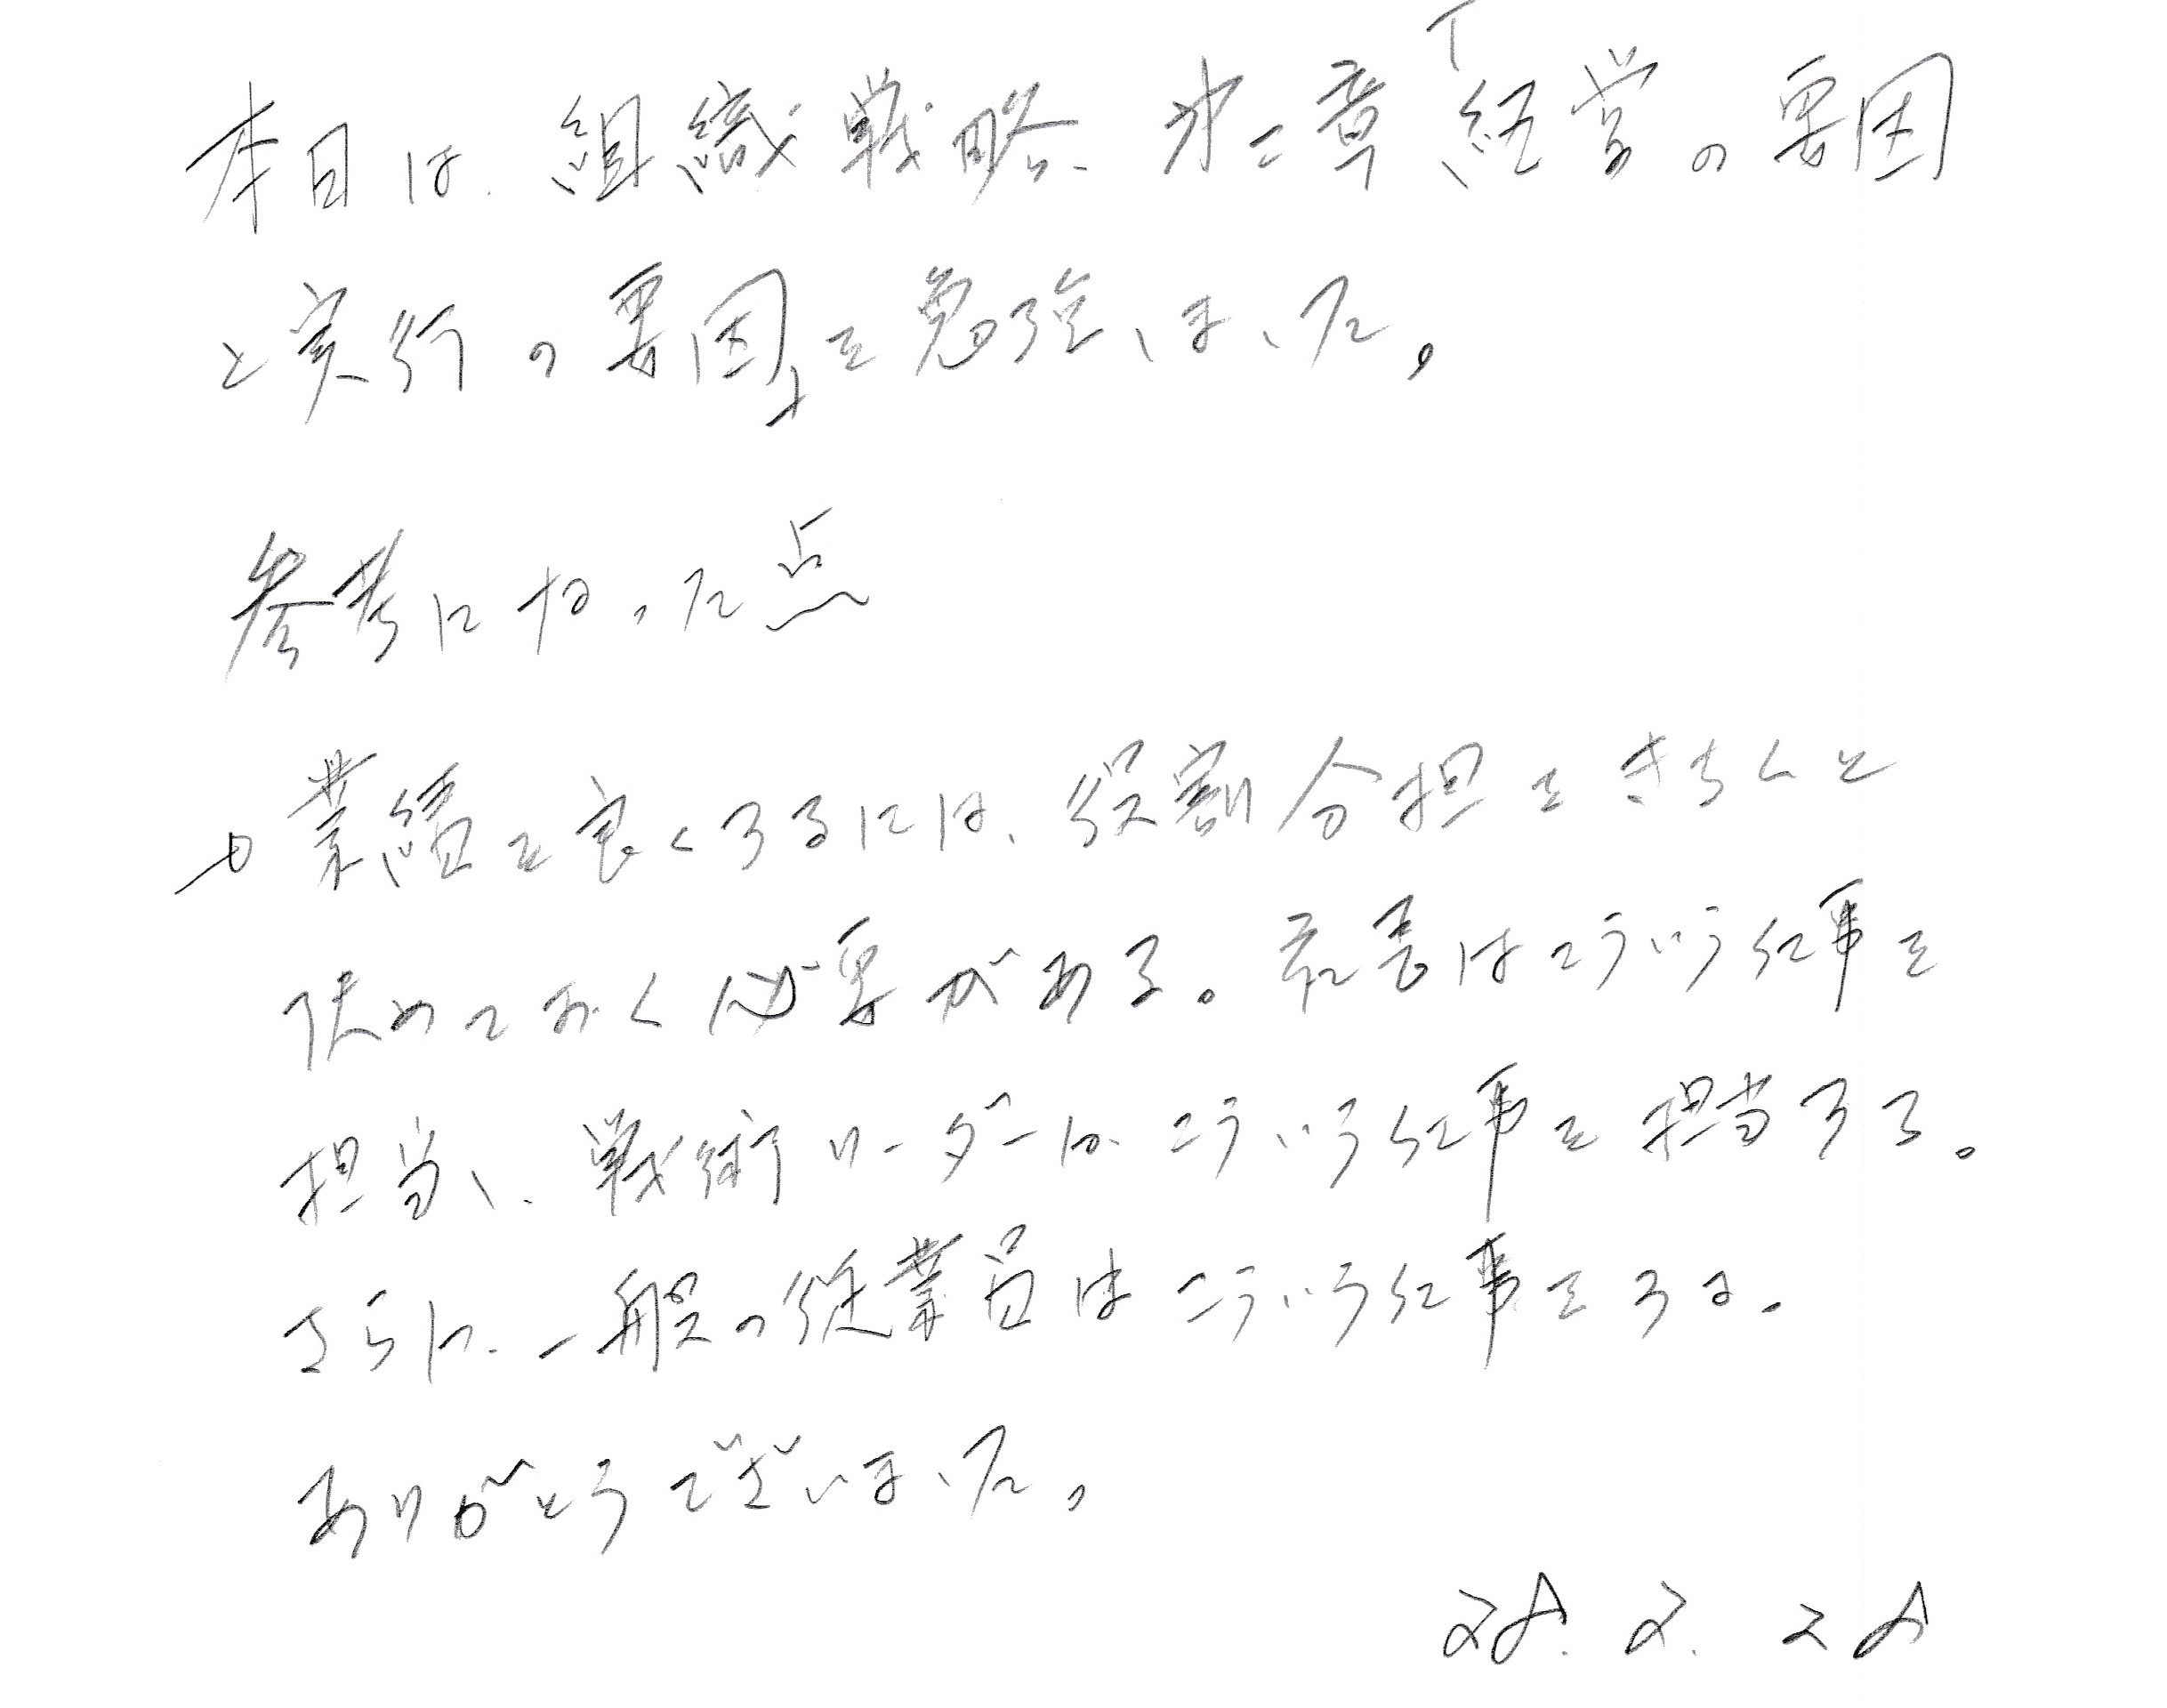 本日は、組織戦略、第二章「経営の要因
と実行の要因」を勉強しました。
参考になった点
業績を良くするには、役割分担をきちんと
決めておく必要がある。社長はこういう仕事を
担当し、戦術リーダーは、こういう仕事を担当する。
さらに、一般の従業員はこういう仕事をする。
ありがとうございました。